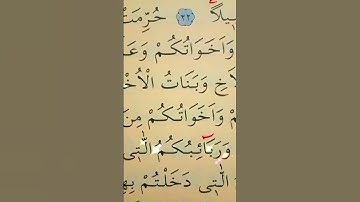 ب۪يلًا ﴿٢٢﴾ حُرِّمَتْ
وَاَخَوَاتُكُمْ وَعَ
لْاَخِ وَبَنَاتُ الْاُخْ
مْ وَاَخَوَاتُكُمْ مِنَ
وَرَبَٓائِبُكُمُ الّٰت۪ي
الّٰت۪ي دَخَلْتُمْ بِهِ